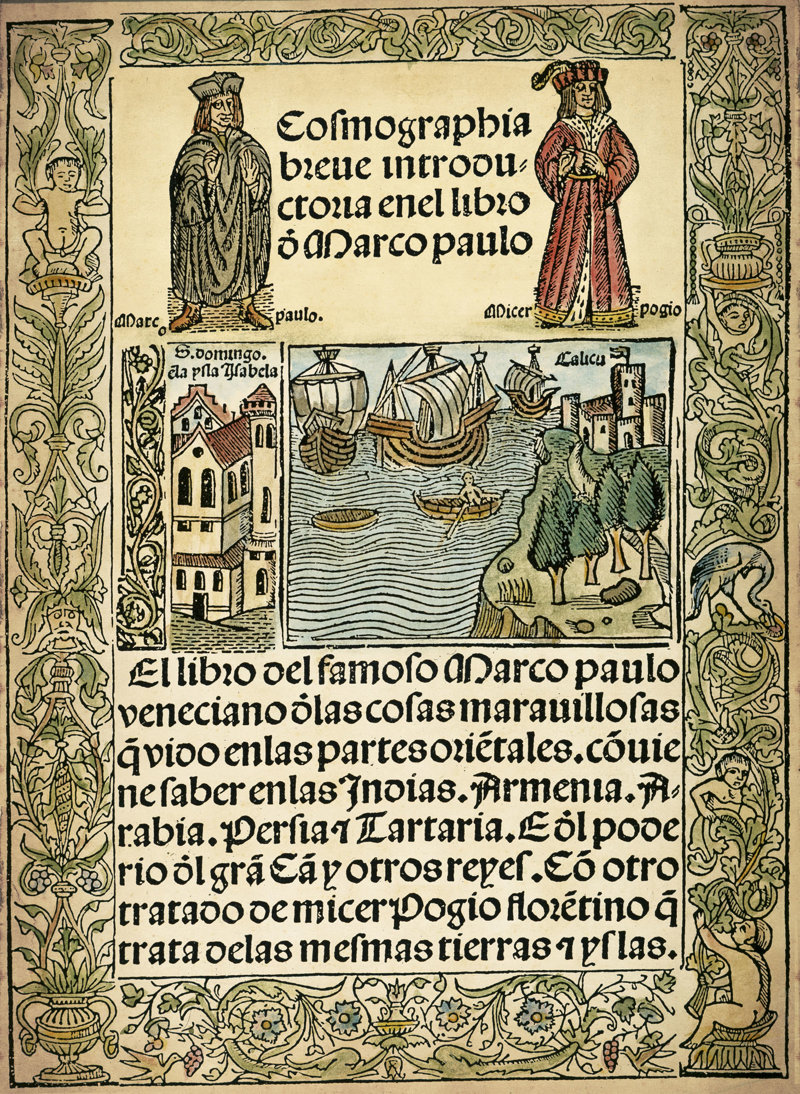 Coſmographia
breue introdu⸗
ctoria enel libro
đ Marco paulo
Marco paulo.
Micer pogio
S. domingo.
đla yſla Yſabela
Calicu
El libro del famoſo Marco paulo
veneciano đlas coſas marauilloſas
q̃ vido enlas partes oriẽtales. cõuie
ne ſaber enlas Indias. Armenia. A⸗
rabia. Perſia ⁊ Tartaria. E đl pode
rio đl grã Cã y otros reyes. Cõ otro
tratado de micer Pogio florẽtino q̃
trata delas meſmas tierras ⁊ yſlas.